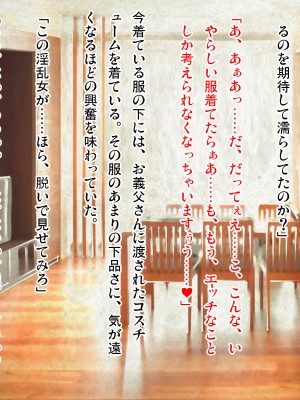 るのを期待して濡らしてたのか？」
「あ、あぁあっ……だ、だってぇえ……こ、こんな、い
やらしい服着てたらぁあ……も、もう、エッチなこと
しか考えられなくなっちゃいますぅう……♥」
今着ている服の下には、お義父さんに渡されたコスチ
ュームを着ている。その服のあまりの下品さに、気が遠
くなるほどの興奮を味わっていた。
「この淫乱女が……ほら、脱いで見せてみろ」